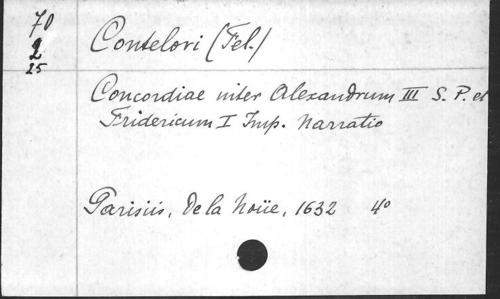 70
2
25
Contelori (Fel.)
Concordiae inter Alexandrum III S. P. et
Fridericum I Imp. Narratio
Parisiis, De la Noüe, 1632 4o